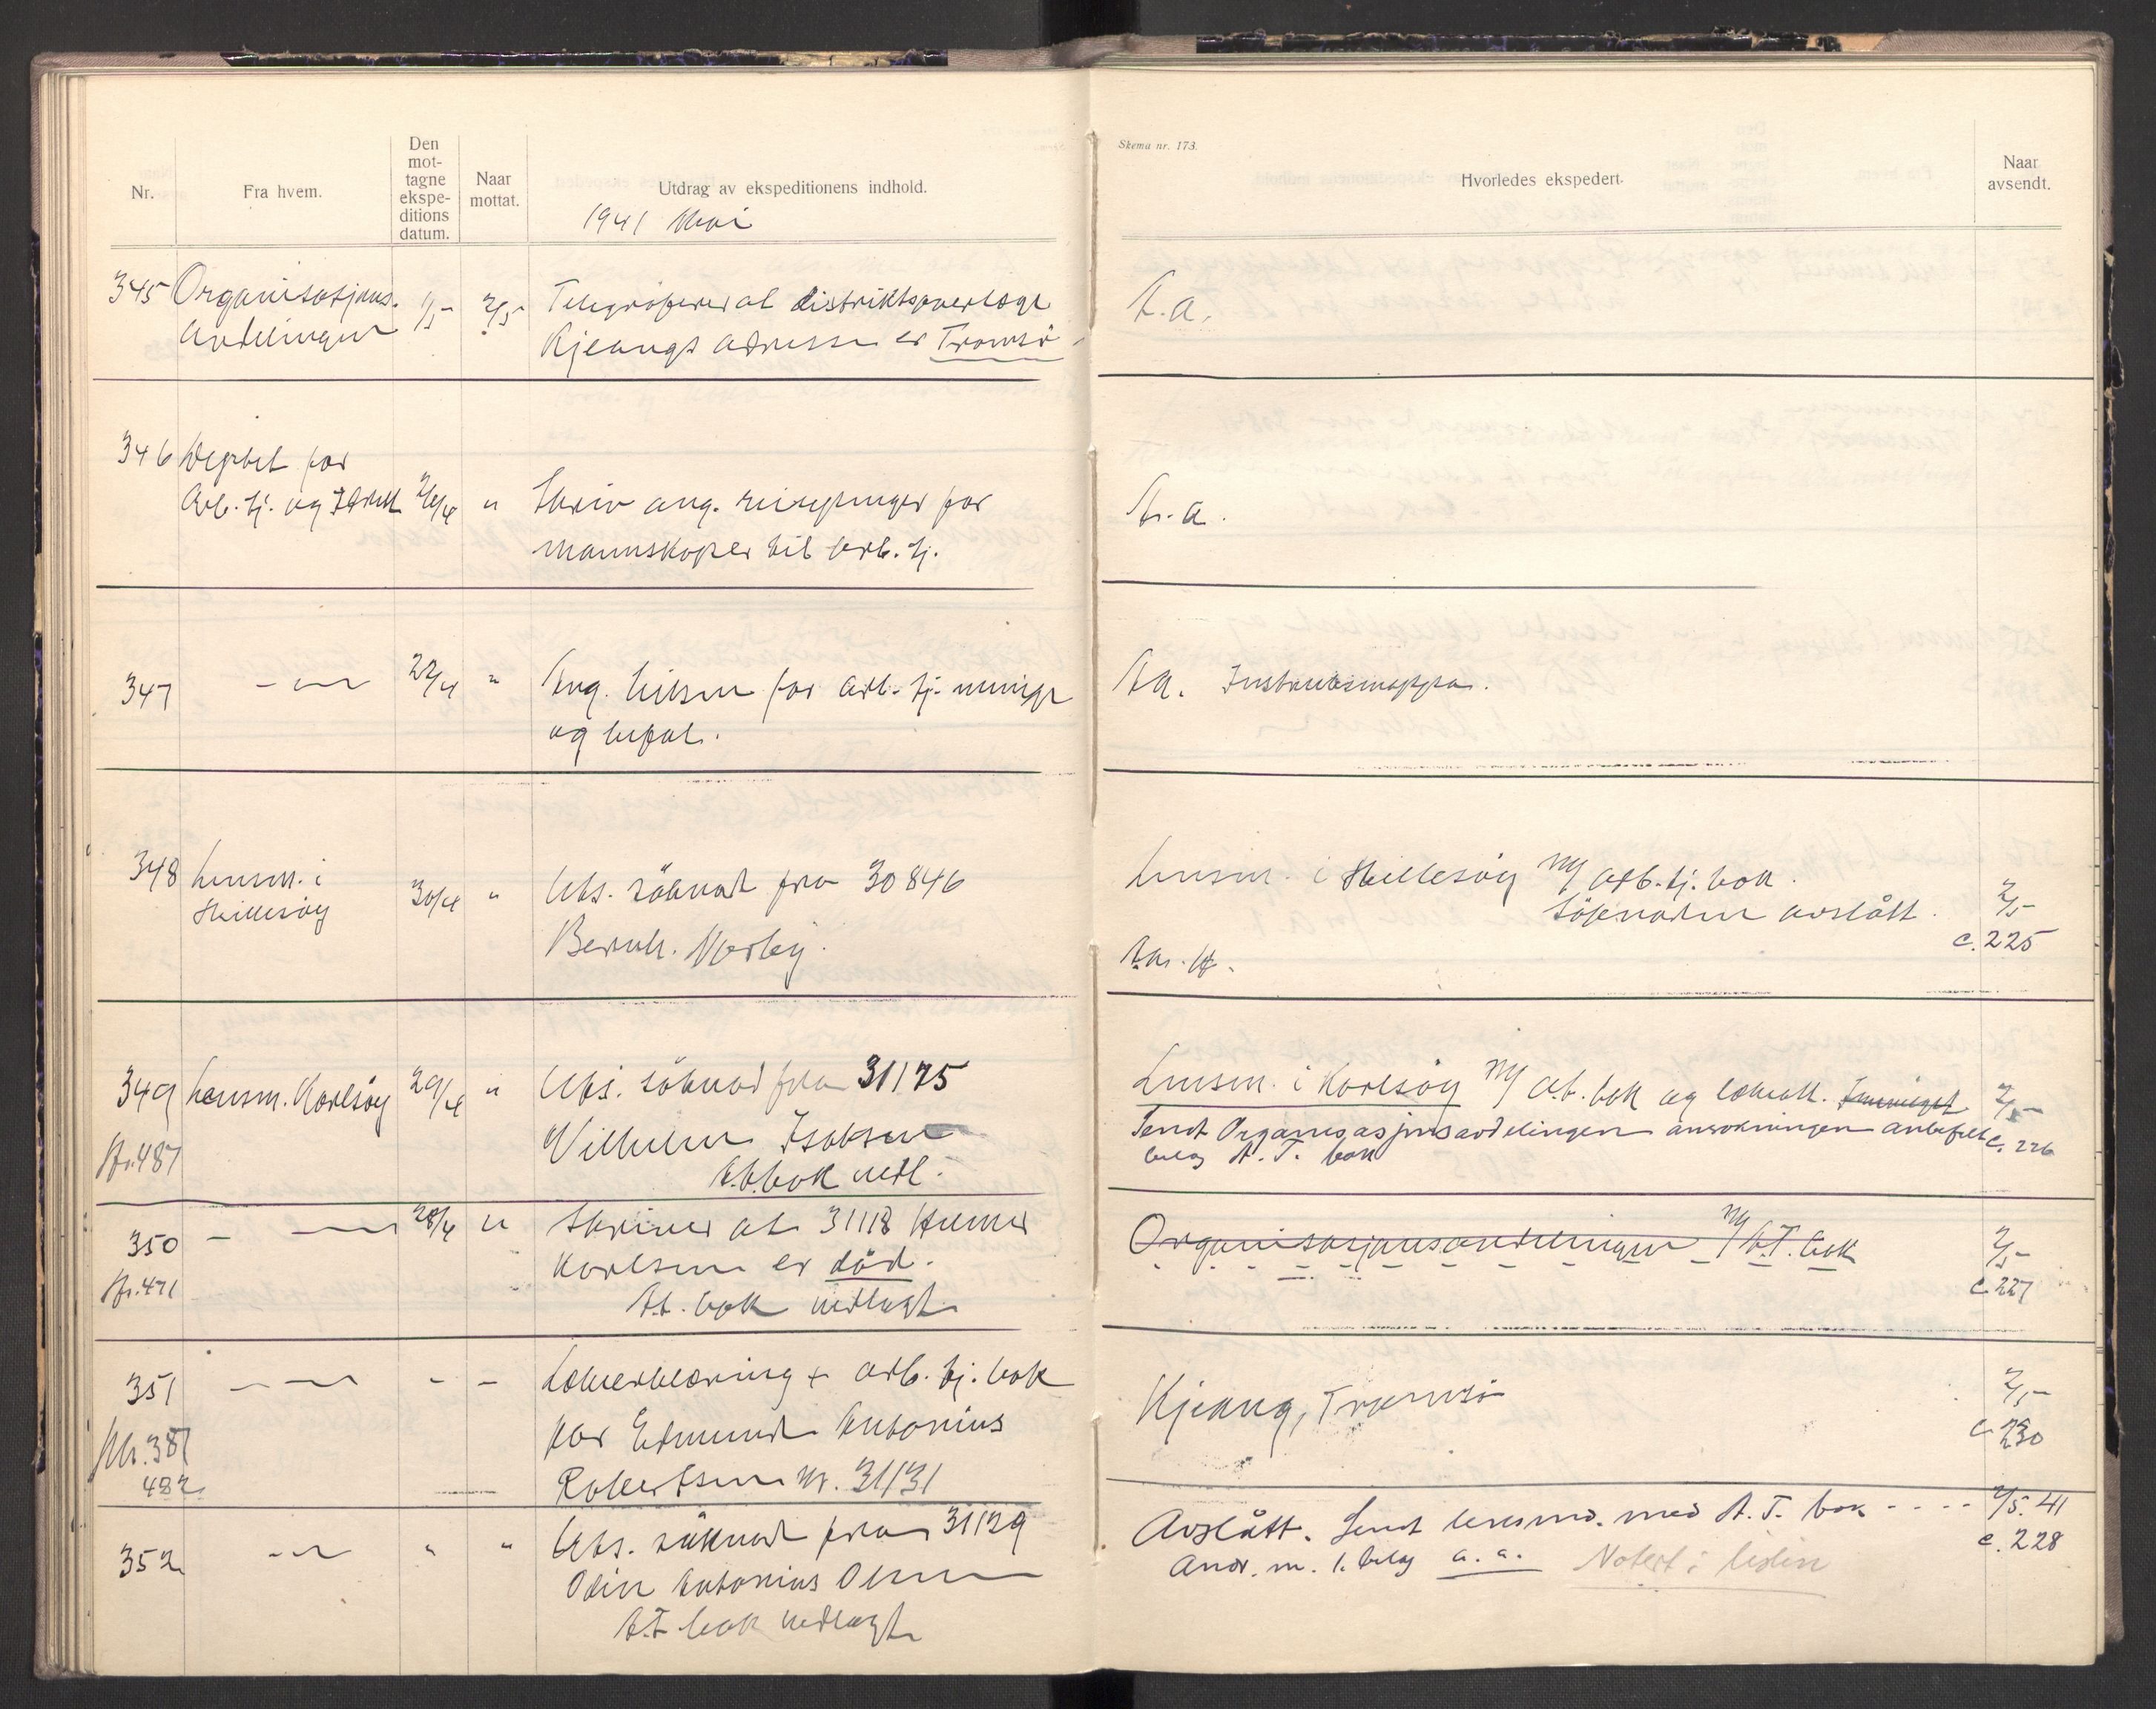 Nr.
Fra hvem.
Den
mot-
tagne
ekspe-
ditions
datum.
Naar
mottat.
Utdrag av ekspeditionens indhold.
1941 Mai
345 Organisasjons- 1/5 2/5 Telegraferer at distriktsoverlege
Avdelingen Kjeangs adresse er Tromsö
346 Deptet for
Arb.tj. og Idrett 26/4 " Skriv ang. reisepenger for
mannskaper til arb.tj.
347 - - 22/4 " Ang. hilsen for arb.tj. menige
og befal.
348 Lensm. i 30/4 " Uts. söknad fra 30846
Hillesöy
Bernh. Nerby.
349 Lensm. Karlsöy 29/4 " Uts. söknad fra 31175
Vilhelm Isaksen
Nr. 487 A.t.bok vedl.
350 - - 28/4 " Skriver at 31118 Hilmer
Karlsen er död.
Nr. 471 A.t. bok vedlagt
351 - - - - Lækerklæring + arb.tj.bok
for Edmund Antonius
Nr. 387
482 Robertsen Nr. 31131
352 - - " " Uts. söknad fra 31129
Odin Antonius Olsen
A.T. bok vedlagt
Skema nr. 173.
Hvorledes ekspedert.
Naar
avsendt.
A.a.
A.a.
A.a. Instruksmappa.
Lensm. i Hillesöy m/ arb.tj.bok.
Söknaden avslått. 2/5
c. 225
Lensm. i Karlsöy m/ A.t. bok og 2/5
Sendt Organisasjonsavdelingen ansökningen anbefalt c. 226
bilag A.T. bok
Organisasjonsavdelingen m/ A.T. bok 2/5
c. 227
Kjeang, Tromsö 2/5
c. 230
Avslått. Sendt lensmd. med A.T. bok - - - - 2/5.41
c. 228
Andr. m. 1. bilag a.a. Notert i listen